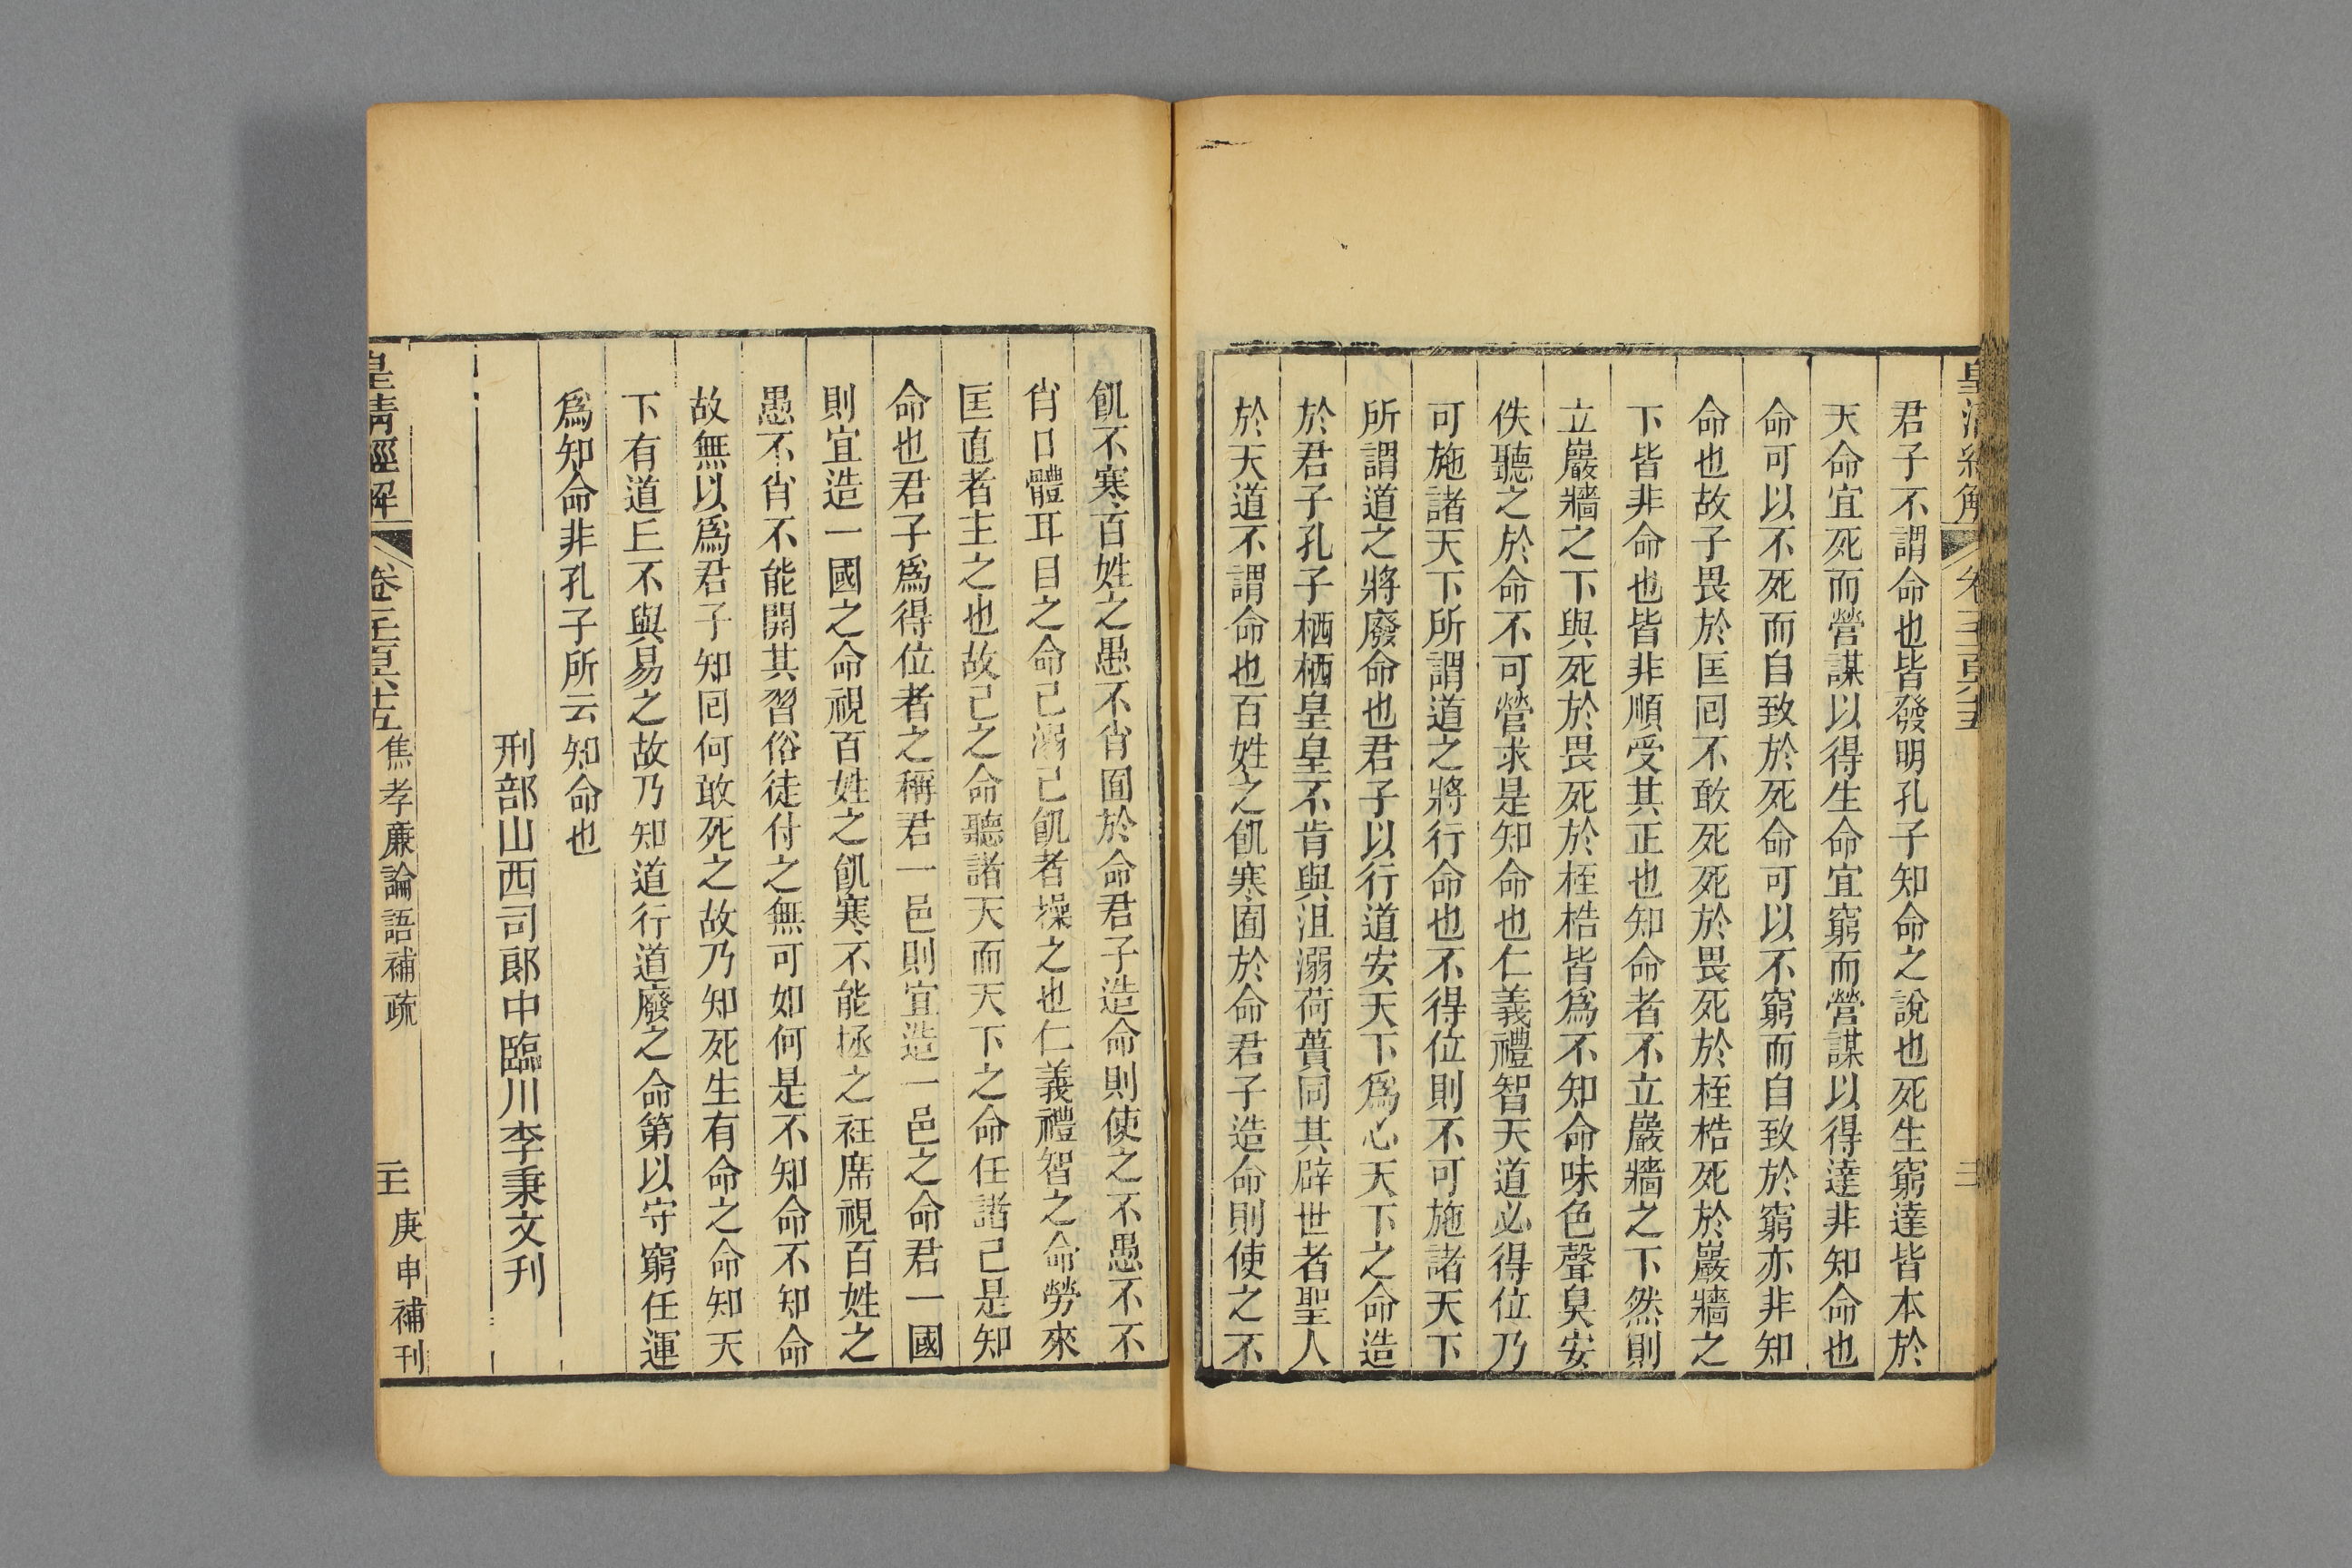 君子不謂命也皆發明孔子知命之說也死生窮達皆本於
天命宜死而營謀以得生命宜窮而營謀以得達非知命也
命可以不死而自致於死命可以不窮而自致於窮亦非知
命也故子畏於匡回不敢死死於畏死於桎梏死於巖牆之
下皆非命也皆非順受其正也知命者不立巖牆之下然則
立巖牆之下與死於畏死於桎梏皆爲不知命味色聲臭安
佚聽之於命不可營求是知命也仁義禮智天道必得位乃
可施諸天下所謂道之將行命也不得位則不可施諸天下
所謂道之將廢命也君子以行道安天下爲心天下之命造
於君子孔子栖栖皇皇不肯與沮溺荷蕢同其辟世者聖人
於天道不謂命也百姓之飢寒囿於命君子造命則使之不
飢不寒百姓之愚不肖囿於命君子造命則使之不愚不不
肖口體耳目之命己溺己飢者操之也仁義禮智之命勞來
匡直者主之也故己之命聽諸天而天下之命任諸己是知
命也君子爲得位者之稱君一邑則宜造一邑之命君一國
則宜造一國之命視百姓之飢寒不能拯之衽席視百姓之
愚不肖不能開其習俗徒付之無可如何是不知命不知命
故無以爲君子知回何敢死之故乃知死生有命之命知天
下有道丘不與易之故乃知道行道廢之命第以守窮任運
爲知命非孔子所云知命也
刑部山西司郎中臨川李秉文刊
皇清經解
焦孝廉論語補疏
庚申補刊